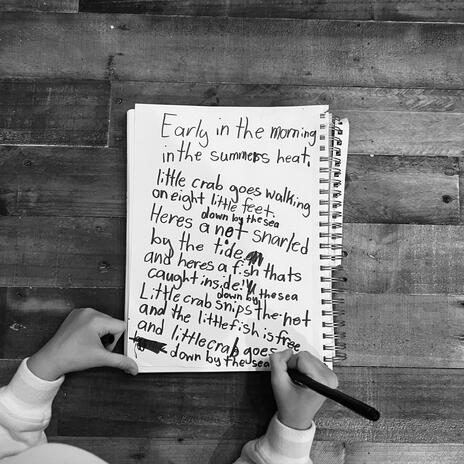 Early in the morning
in the summers heat,
little crab goes walking
on eight little feet.
down by the sea
Heres a net snarled
by the tide
and heres a fish thats
caught inside!
down by the sea
Little crab snips the net
and the little fish is free
and little crab goes
down by the sea